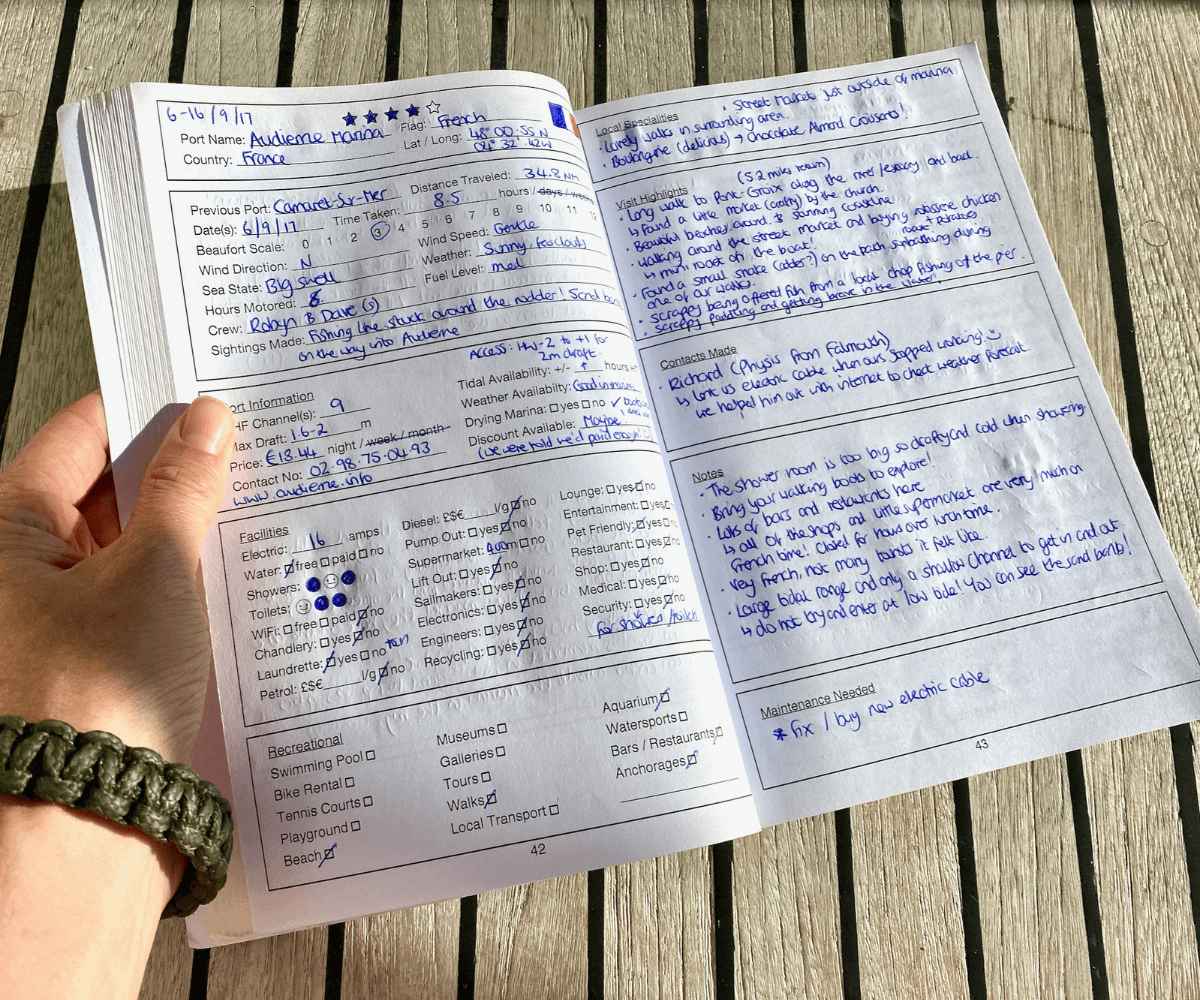 6-16/9/17
Port Name: Audierne Marina Flag: French
Country: France Lat / Long: 48° 00.55 N
04° 32'.42W
Previous Port: Camaret-Sur-Mer Distance Traveled: 34.8 NM
Date(s): 6/9/17 Time Taken: 8.5 hours / days / weeks
Beaufort Scale: 0 1 2 3 4 5 6 7 8 9 10 11 12
Wind Direction: N Wind Speed: Gentle
Sea State: Big swell Weather: Sunny / few clouds
Hours Motored: 8 Fuel Level: med
Crew: Robyn & Dave (s)
Sightings Made: Fishing line stuck around the rudder! Sand bank
on the way into Audierne
ort Information Access: HW-2 to +1 for
2m draft.
HF Channel(s): 9 Tidal Availability: +/- ↑ hours H
Max Draft: 1.6-2 m Weather Availability: Good in
Price: €18.44 night / week / month Drying Marina: yes no
Contact No: 02.98.75.04.93 Discount Available: Maybe
www.audierne.info (we were told we'd paid enough!
Facilities
Electric: 16 amps
Water: free paid no
Showers:
Toilets:
WiFi: free paid no
Chandlery: yes no
Laundrette: yes no
Petrol: £$€ l/g no
Diesel: £$€ l/g no
Pump Out: yes no
Supermarket: no
Lift Out: yes no
Sailmakers: yes no
Electronics: yes no
Engineers: yes no
Recycling: yes no
Lounge: yes no
Entertainment: yes
Pet Friendly: yes no
Restaurant: yes no
Shop: yes no
Medical: yes no
Security: yes no
for shower/toilet
Recreational
Swimming Pool
Bike Rental
Tennis Courts
Playground
Beach
Museums
Galleries
Tours
Walks
Local Transport
Aquarium
Watersports
Bars / Restaurants
Anchorages
42
Local Specialities • Street Markets just outside of marina
• Lovely walks in surrounding area.
• Boulangerie (delicious) → Chocolate Almond Croissants!
Visit Highlights (5.2 miles return)
• Long walk to Pont-Croix along the river/estuary and back.
↳ Found a little market (crafty) by the church.
• Beautiful beaches around & stunning coastline
• Walking around the street market and buying rotisserie chicken
↳ mini roast on the boat! + potatoes
• Found a small snake (adder?) on the path sunbathing during
one of our walks.
• Scrappy being offered fish from a local chap fishing off the pier.
• Scrappy paddling and getting brave in the water!
Contacts Made
• Richard (Physis from Falmouth)
↳ Lent us electric cable when ours stopped working!
we helped him out with internet to check weather forecast.
Notes
• The shower room is too big so drafty and cold when showering.
• Bring your walking boots to explore!
• Lots of bars and restaurants here
↳ all of the shops and little supermarket are very much on
French time! Closed for hours over lunchtime.
• Very French, not many tourists it felt like.
• Large tidal range and only a shallow channel to get in and out.
↳ do not try and enter at low tide! You can see the sand banks!
Maintenance Needed
* fix / buy new electric cable
43